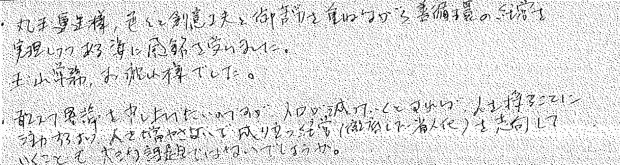 ・丸末更生様, 色々と創意工夫と御苦労を重ねながら善循環の経営を
実現しつつある姿に感銘を受けました。
土山常務, お疲れ様でした。
・敢えて異論を申し上げたいのですが 人口が減っていくとすれば 人を採ることに
注力するより 人を増やさないで成り立つ経営(徹底した省人化)を志向して
いくことも 大きな課題ではないでしょうか。